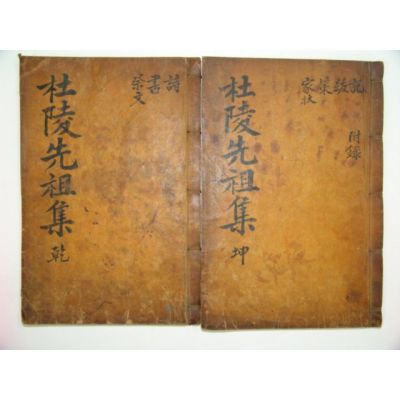 杜陵先祖集 乾
詩
書
祭文
杜陵先祖集 坤
記
跋
家狀
附錄